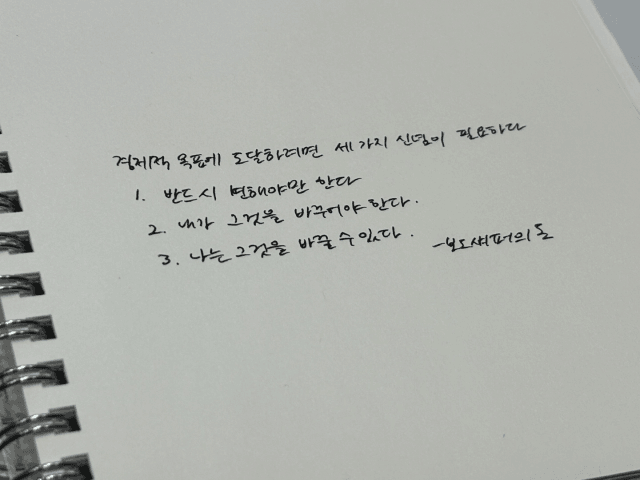 경제적 목표에 도달하려면 세 가지 신념이 필요하다
1. 반드시 변해야만 한다
2. 내가 그것을 바꾸어야 한다.
3. 나는 그것을 바꿀 수 있다.
-보도섀퍼의 돈